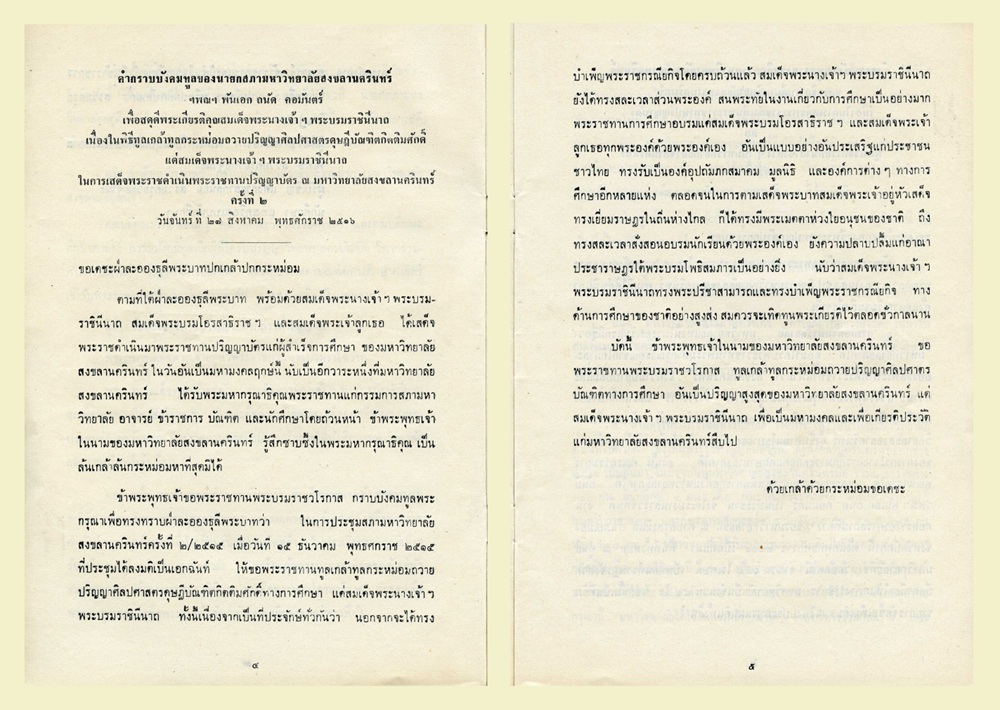 คำกราบบังคมทูลของนายกสภามหาวิทยาลัยสงขลานครินทร์
ฯพณฯ พันเอก ถนัด คอมันตร์
เพื่อสดุดีพระเกียรติคุณสมเด็จพระนางเจ้า ฯ พระบรมราชินีนาถ
เนื่องในพิธีทูลเกล้าทูลกระหม่อมถวายปริญญาศิลปศาสตรดุษฎีบัณฑิตกิตติมศักดิ์
แด่สมเด็จพระนางเจ้า ฯ พระบรมราชินีนาถ
ในการเสด็จพระราชดำเนินพระราชทานปริญญาบัตร ณ มหาวิทยาลัยสงขลานครินทร์
ครั้งที่ ๒
วันจันทร์ ที่ ๒๗ สิงหาคม พุทธศักราช ๒๕๑๖
ขอเดชะฝ่าละอองธุลีพระบาทปกเกล้าปกกระหม่อม
ตามที่ใต้ฝ่าละอองธุลีพระบาท พร้อมด้วยสมเด็จพระนางเจ้า ฯ พระบรม-
ราชินีนาถ สมเด็จพระบรมโอรสาธิราช ฯ และสมเด็จพระเจ้าลูกเธอ ได้เสด็จ
พระราชดำเนินมาพระราชทานปริญญาบัตรแก่ผู้สำเร็จการศึกษา ของมหาวิทยาลัย
สงขลานครินทร์ ในวันอันเป็นมหามงคลฤกษ์นี้ นับเป็นอีกวาระหนึ่งที่มหาวิทยาลัย
สงขลานครินทร์ ได้รับพระมหากรุณาธิคุณพระราชทานแก่กรรมการสภามหา
วิทยาลัย อาจารย์ ข้าราชการ บัณฑิต และนักศึกษาโดยถ้วนหน้า ข้าพระพุทธเจ้า
ในนามของมหาวิทยาลัยสงขลานครินทร์ รู้สึกซาบซึ้งในพระมหากรุณาธิคุณ เป็น
ล้นเกล้าล้นกระหม่อมหาที่สุดมิได้
ข้าพระพุทธเจ้าขอพระราชทานพระบรมราชวโรกาส กราบบังคมทูลพระ
กรุณาเพื่อทรงทราบฝ่าละอองธุลีพระบาทว่า ในการประชุมสภามหาวิทยาลัย
สงขลานครินทร์ครั้งที่ ๒/๒๕๑๕ เมื่อวันที่ ๑๕ ธันวาคม พุทธศักราช ๒๕๑๕
ที่ประชุมได้ลงมติเป็นเอกฉันท์ ให้ขอพระราชทานทูลเกล้าทูลกระหม่อมถวาย
ปริญญาศิลปศาสตรดุษฎีบัณฑิตกิตติมศักดิ์ทางการศึกษา แด่สมเด็จพระนางเจ้า ฯ
พระบรมราชินีนาถ ทั้งนี้เนื่องจากเป็นที่ประจักษ์ทั่วกันว่า นอกจากจะได้ทรง
๔
บำเพ็ญพระราชกรณียกิจโดยครบถ้วนแล้ว สมเด็จพระนางเจ้าฯ พระบรมราชินีนาถ
ยังได้ทรงสละเวลาส่วนพระองค์ สนพระทัยในงานเกี่ยวกับการศึกษาเป็นอย่างมาก
พระราชทานการศึกษาอบรมแด่สมเด็จพระบรมโอรสาธิราช ฯ และสมเด็จพระเจ้า
ลูกเธอทุกพระองค์ด้วยพระองค์เอง อันเป็นแบบอย่างอันประเสริฐแก่ประชาชน
ชาวไทย ทรงรับเป็นองค์อุปถัมภกสมาคม มูลนิธิ และองค์การต่าง ๆ ทางการ
ศึกษาอีกหลายแห่ง ตลอดจนในการตามเสด็จพระบาทสมเด็จพระเจ้าอยู่หัวเสด็จ
ทรงเยี่ยมราษฎรในถิ่นห่างไกล ก็ได้ทรงมีพระเมตตาห่วงใยอนุชนของชาติ ถึง
ทรงสละเวลาสั่งสอนอบรมนักเรียนด้วยพระองค์เอง ยังความปลาบปลื้มแก่อาณา
ประชาราษฎรใต้พระบรมโพธิสมภารเป็นอย่างยิ่ง นับว่าสมเด็จพระนางเจ้า ฯ
พระบรมราชินีนาถทรงพระปรีชาสามารถและทรงบำเพ็ญพระราชกรณียกิจ ทาง
ด้านการศึกษาของชาติอย่างสูงส่ง สมควรจะเทิดทูนพระเกียรติไว้ตลอดชั่วกาลนาน
บัดนี้ ข้าพระพุทธเจ้าในนามของมหาวิทยาลัยสงขลานครินทร์ ขอ
พระราชทานพระบรมราชวโรกาส ทูลเกล้าทูลกระหม่อมถวายปริญญาศิลปศาตร
บัณฑิตทางการศึกษา อันเป็นปริญญาสูงสุดของมหาวิทยาลัยสงขลานครินทร์ แด่
สมเด็จพระนางเจ้า ฯ พระบรมราชินีนาถ เพื่อเป็นมหามงคลและเพื่อเกียรติประวัติ
แก่มหาวิทยาลัยสงขลานครินทร์สืบไป
ด้วยเกล้าด้วยกระหม่อมขอเดชะ
๕